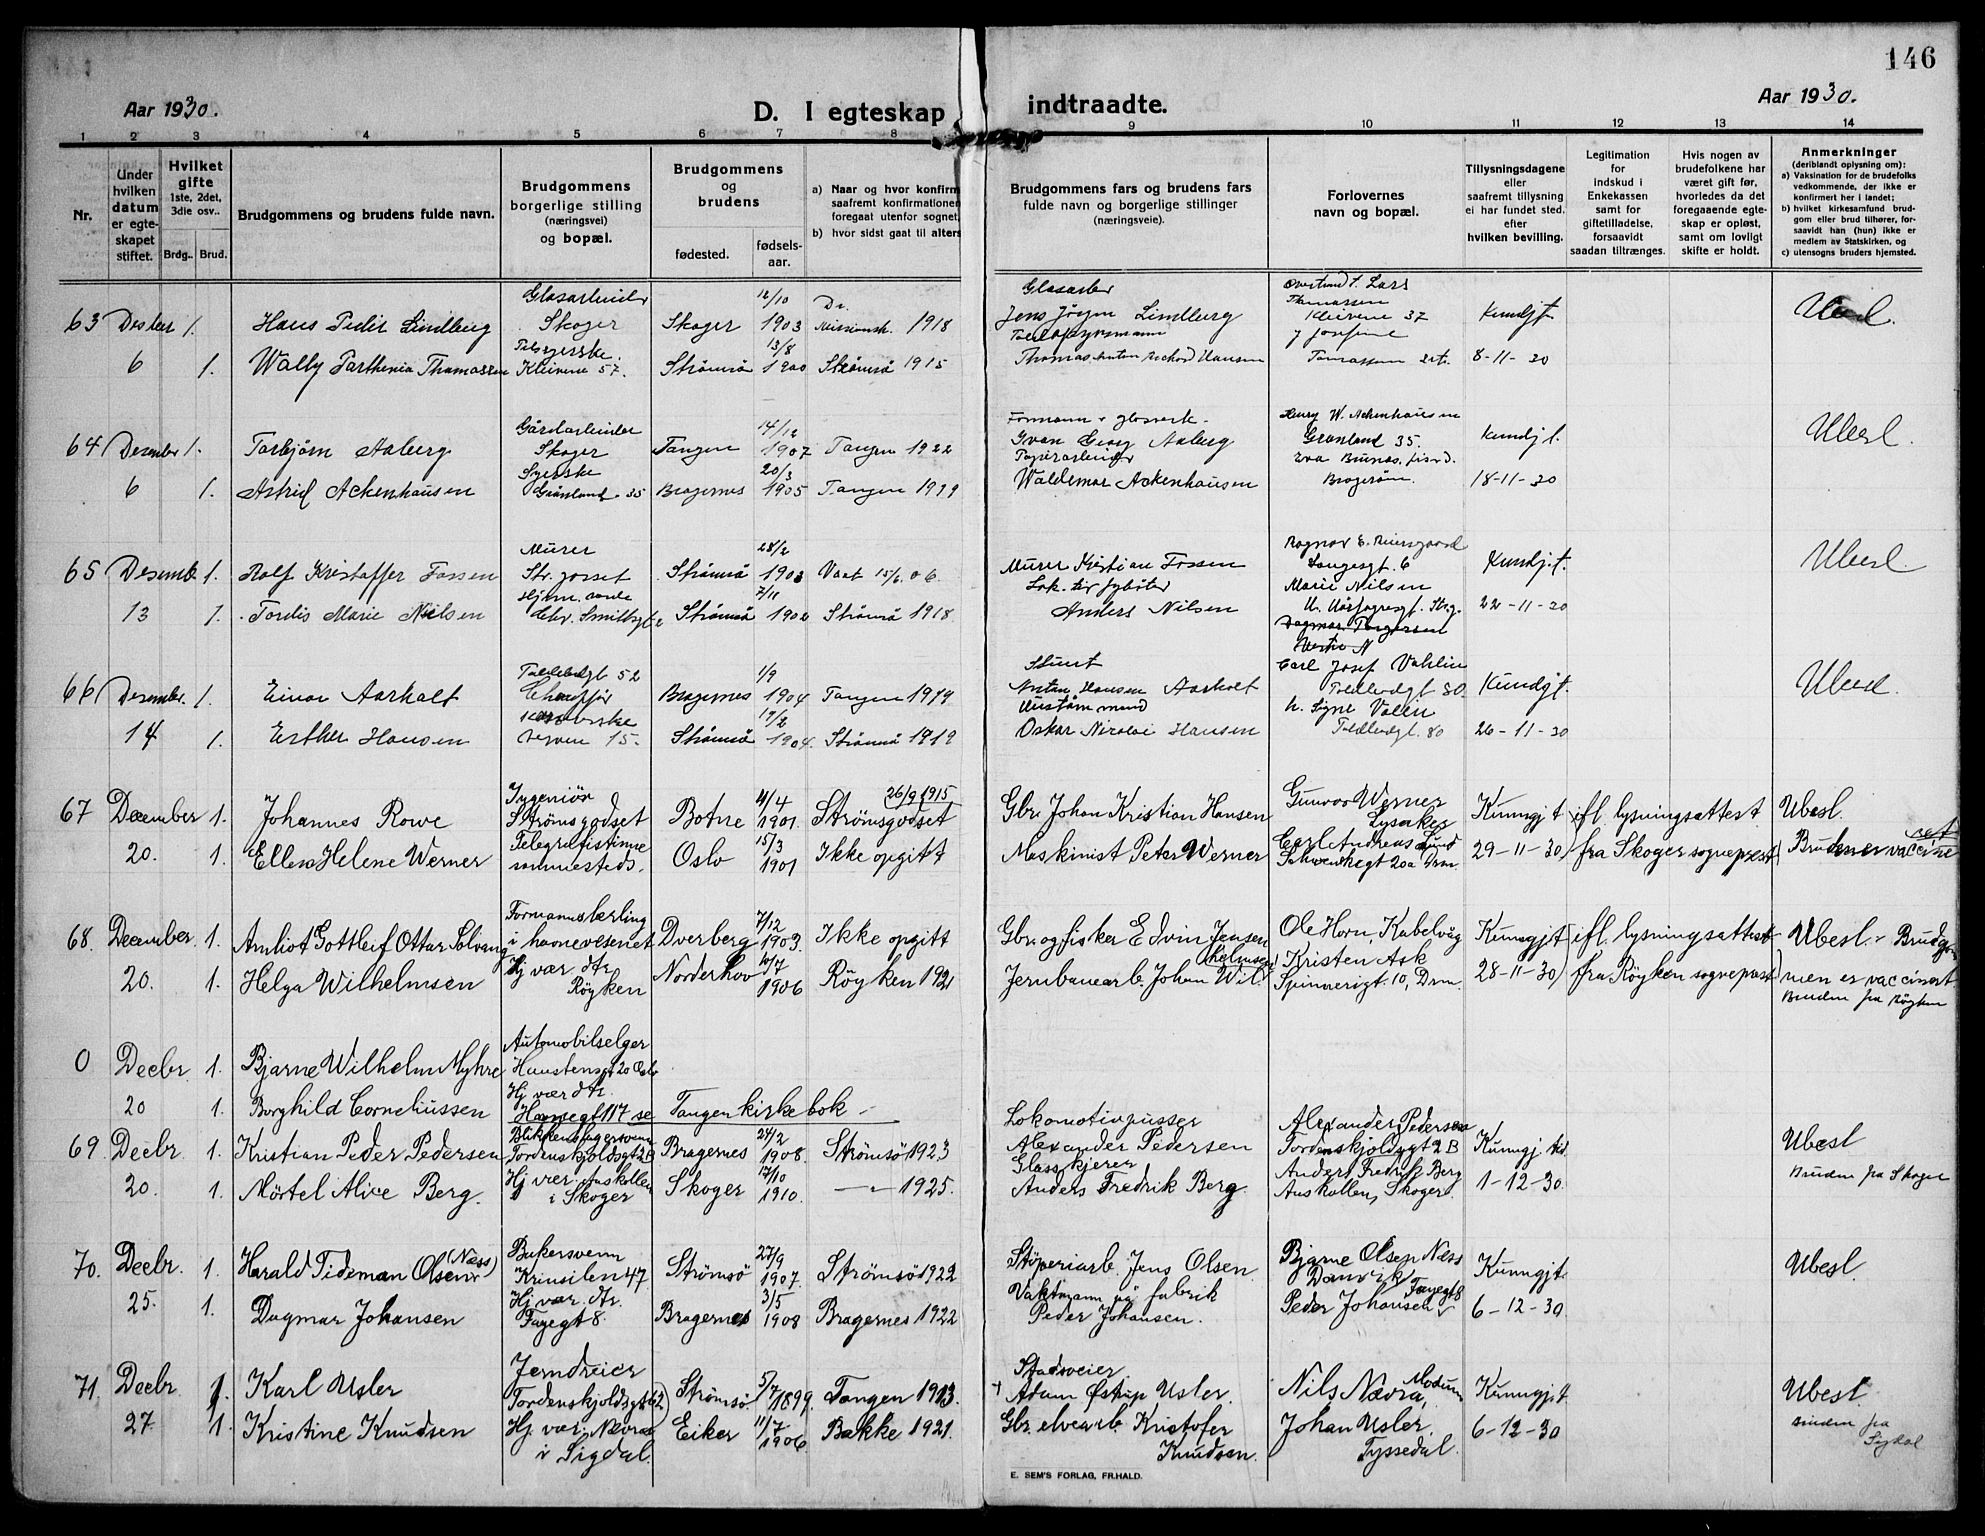 146
Aar 1930.
D. I egteskap indtraadte.
Aar 1930.
1 2 3 4 5 6 7 8 9 10 11 12 13 14
Nr.
Under hvilken datum er egteskapet stiftet.
Hvilket gifte 1ste, 2det, 3die osv..
Brdg.. Brud.
Brudgommens og brudens fulde navn.
Brudgommens borgerlige stilling (næringsvei) og bopæl.
Brudgommens og brudens
fødested.
fødselsaar.
a) Naar og hvor konfirm saafremt konfirmationen foregaat utenfor sognet.
b) hvor sidst gaat til alters
Brudgommens fars og brudens fars fulde navn og borgerlige stillinger (næringsveie).
Forlovernes navn og bopæl.
Tillysningsdagene eller saafremt tillysning ei har fundet sted. efter hvilken bevilling.
Legitimation for indskud i Enkekassen samt for giftetilladelse, forsaavidt saadan tiltrænges.
Hvis nogen av brudefolkene har været gift før, hvorledes da det foregaaende egteskap er opløst, samt om lovlig skifte er holdt.
Anmerkninger (deriblandt oplysning om):
a) Vaksination for de brudefolks vedkommende, der ikke er konfirmert her i landet;
b) hvilket kirkesamfund brudgom eller brud tilhører, forsaavidt han (hun) ikke er medlem av Statskirken, og
c) utensogns bruders hjemsted.
Glasarbeider 12/10 Glasarbr
63 1. Hans Peder Lindberg Skoger Skoger 1903 1918 Jens Jörgen Lindberg 37 Kundgjt. Ubesl.
13/8 Josefine
6 1. Wally Parthenia Thomassen Kleivene 57. Strömsö 1900 Strömsö 1915 Thomas Anton Hansen 8-11-30
Gårdarbeider 14/12 Formann Henry W. Ackenhausen
64 Desember 1. Torbjörn Aaberg Skoger Tangen 1907 Tangen 1922 Georg Aaberg Grønland 35. Kundgj t. Ubesl.
Syerske 20/3 Papirarbeider Eva
6 1. Astrid Ackenhausen Grønland 35 Bragernes 1905 Tangen 1919 Waldemar Ackenhausen 18-11-30
Murer 28/2
65 Desemb 1. Rolf Kristoffer Fossen Strömsö 1903 15/ 06. Murer Kristian Fossen Langesgt. 6 Kundgj.t. Ubesl.
7/11 Marie Nilsen
13 1. Tordis Marie Nilsen Chr. Smithsgt 2 Strömsö 1902 Strömsö 1918. Anders Nilsen 22-11-30
Dagmar Torgersen
Tollbodgt 52 1/9 Carl Josef Vahlin
66 Desember 1. Einar Aarholt Chauffør Bragernes 1904 Tangen 1919 Anton Hansen Aarholt Toldbodgt 80. Kundgjt. Ubesl.
17/2
14 1. Esther Hansen 15. Strömsö 1904. Strömsö 1919 Oskar Nicolai Hansen Toldbodgt. 80 26-11-30
Ingeniör 4/4 26/9 1915 Gunvor Werner
67 December 1. Johannes Rowe Strömsgodset Botne 1901. Strömsgodset Gbr. Johan Kristian Hansen Lysaker Kunngjt ifl. lysningsattest Ubesl.
Telegrafistinne 15/3 Carl Andreas Lund
20. 1. Ellen Helene Werner sammesteds. Oslo 1901 Ikke opgitt Maskinist Peter Werner Schwenkegt 20a Drm. 29-11-30 fra Skoger sogneprest Bruden er vaccinert
Formannslærling 7/12
68. December 1. Arnliot Gottleif Ottar Solvang i havnevesenet Dverberg 1903. Ikke opgitt Gbr. og fisker Edvin Jensen Ole Horn, Kabelvåg Kunngjt ifl. lysningsattest Ubesl. Brudgom
Hj vær. dtr. 10/7 Kristen Ask
20. 1. Helga Wilhelmsen Røyken Norderhov 1906 Röyken 1921 Jernbanearb. Johan Wilhelmsen Spinnerigt. 10, Drm. 28-11-30 fra Røyken sogneprest men er vaccinert
Bruden fra Røyken
Automobilselger
0 Decbr 1. Bjarne Wilhelm Myhre Haustensgt 20 Oslo
Hj vær dtr.
20 1. Borghild Corneliussen Havnegt 117 se Tangen kirkebok -
Lokomotivpusser Alexander Pedersen
Blikkenslagersvenn 24/2
69. Decbr. 1. Kristian Peder Pedersen Tordenskjoldsgt 2B Bragernes 1908. Strömsö 1923 Alexander Pedersen Tordenskjoldsgt 2 B Kunngj. tid Ubesl
Hj vær. Auskollen 17/10 Glasskjerer Anders Fredrik Berg Bruden fra Skoger
20. 1. Mörtel Alice Berg. i Skoger Skoger 1910. -"- 1925. Anders Fredrik Berg Auskollen, Skoger. 1-12-30.
Bakersvenn 27/9 Bjarne Olsen Næss
70. Decbr. 1. Harald Tideman Olsen (Næss) Krinsilen 47. Strömsö 1907. Strömsö 1922 Støperiarb. Jens Olsen Danvik Kunngjt. Ubesl.
Hj vær. dtr. 3/5 Vaktmann på fabrik Fayegt 8
25. 1. Dagmar Johansen Fayegt 8. Bragernes 1908 Bragernes 1922 Peder Johansen. Peder Johansen 6-12-30
Jerndreier 5/7 Stadsveier
71. Decbr. 1. Karl Usler Tordenskjoldsgt 62 Strömsö 1899. Tangen 1913. + Adam Østrup Usler. Nils Nævra, Modum Kunngjt Ubesl.
27. 1. Kristine Knudsen Hj vær, Nævra Eiker 11/7 1906 Bakke 1921. Gbr. elvearb. Kristofer Johan Usler, 6-12-30 Bruden fra
i Sigdal. Knudsen. Tyssedal. Sigdal
E. SEM'S FORLAG, FR.HALD.